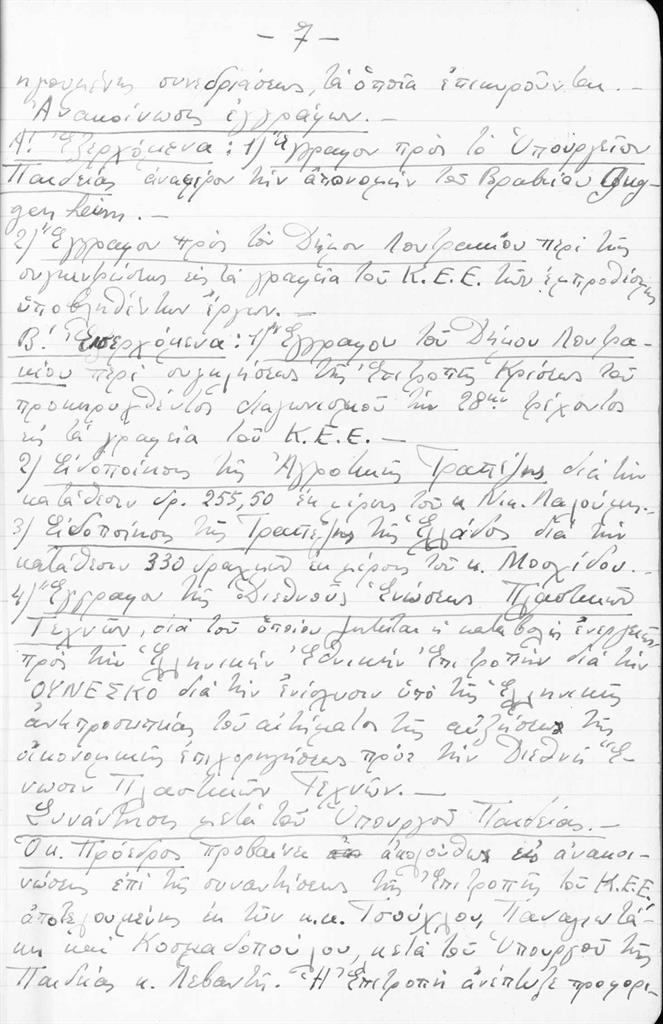 - 7 -
ηγουμένης συνεδριάσεως, τὰ ὁποῖα ἐπικυροῦνται. -
Ἀνακοίνωσις ἐγγράφων. -
Α! Ἐξερχόμενα: 1) Ἔγγραφον πρὸς τὸ Ὑπουργεῖον
Παιδείας ἀναφέρον τὴν ἀπονομὴν τοῦ Βραβείου Gug-
genheim. -
2) Ἔγγραφον πρὸς τὸν Δῆμον Λουτρακίου περὶ τῆς
συγκεντρώσεως εἰς τὰ γραφεῖα τοῦ Κ.Ε.Ε. τῶν ἐμπροθέσμως
ὑποβληθέντων ἔργων. -
Β! Εἰσερχόμενα: 1) Ἔγγραφον τοῦ Δήμου Λουτρα-
κίου περὶ συγκλήσεως τῆς Ἐπιτροπῆς Κρίσεως τοῦ
προκηρυχθέντος διαγωνισμοῦ τὴν 28ην τρέχοντος
εἰς τὰ γραφεῖα τοῦ Κ.Ε.Ε. -
2) Εἰδοποίησις τῆς Ἀγροτικῆς Τραπέζης διὰ τὴν
κατάθεσιν δρ. 255,50 ἐκ μέρους τοῦ κ. Νικ.
3) Εἰδοποίησις τῆς Τραπέζης τῆς Ἑλλάδος διὰ τὴν
κατάθεσιν 330 δραχμῶν ἐκ μέρους τοῦ κ. Μοσχίδου. -
4) Ἔγγραφον τῆς Διεθνοῦς Ἑνώσεως Πλαστικῶν
Τεχνῶν, διὰ τοῦ ὁποίου ζητεῖται ἡ καταβολὴ ἐνεργειῶν
πρὸς τὴν Ἑλληνικὴν Ἐθνικὴν Ἐπιτροπὴν διὰ τὴν
ΟΥΝΕΣΚΟ διὰ τὴν ἐνίσχυσιν ὑπὸ τῆς Ἑλληνικῆς
ἀντιπροσωπείας τοῦ αἰτήματος τῆς αὐξήσεως τῆς
οἰκονομικῆς ἐπιχορηγήσεως πρὸς τὴν Διεθνῆ Ἕ-
νωσιν Πλαστικῶν Τεχνῶν. -
Συνάντησις μετὰ τοῦ Ὑπουργοῦ Παιδείας. -
Ὁ κ. Πρόεδρος προβαίνει ἀκολούθως εἰς ἀνακοι-
νώσεις ἐπὶ τῆς συναντήσεως τῆς Ἐπιτροπῆς τοῦ Κ.Ε.Ε.
ἀποτελουμένης ἐκ τῶν κ.κ. Τσούχλου, Παναγιωτά-
κη καὶ Κοσμαδοπούλου, μετὰ τοῦ Ὑπουργοῦ τῆς
Παιδείας κ. Λεβαντῆ. Ἡ Ἐπιτροπὴ ἀνέπτυξε προφορι-